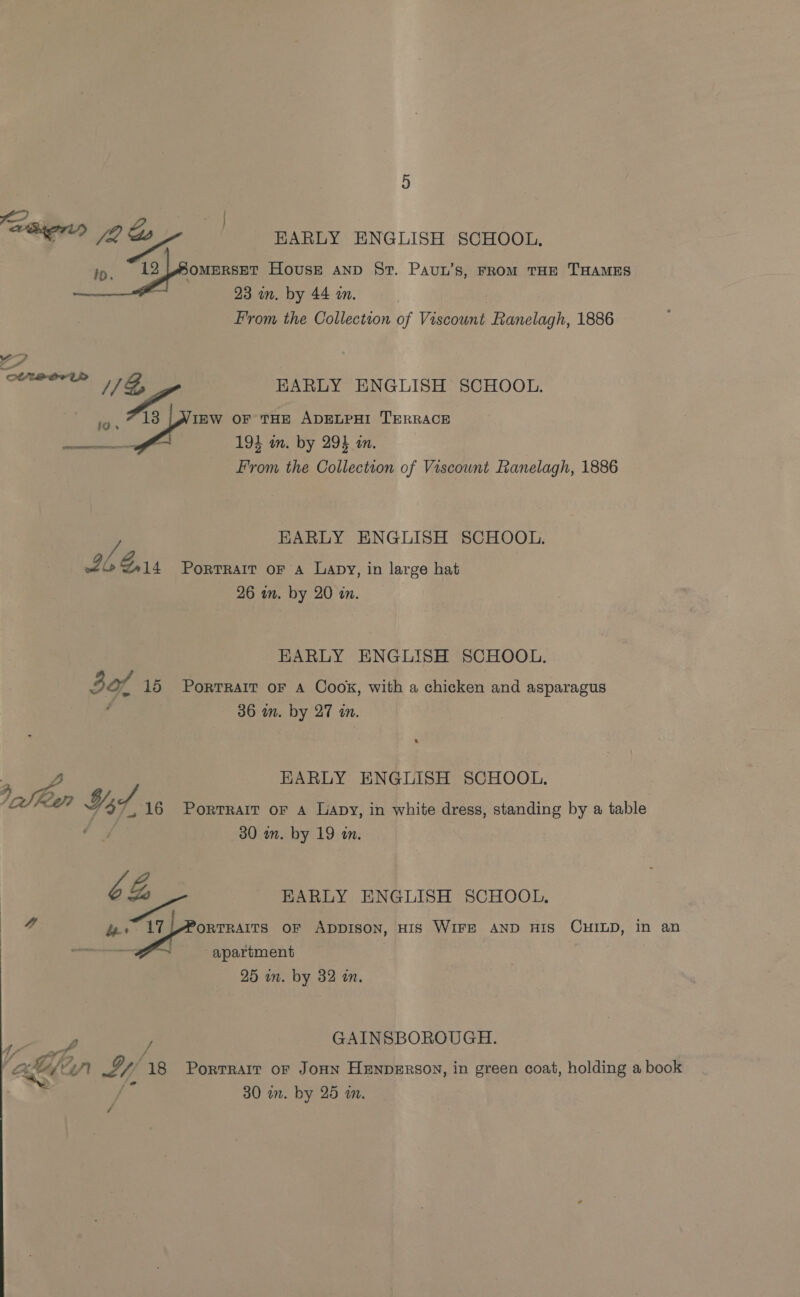 5
EARLY ENGLISH SCHOOL.
12 SOMERSET HOUSE AND ST. PAUL'S, FROM THE THAMES
23 in. by 44 in.
From the Collection of Viscount Ranelagh, 1886
EARLY ENGLISH SCHOOL.
13 VIEW OF THE ADELPHI TERRACE
19½ in. by 29½ in.
From the Collection of Viscount Ranelagh, 1886
EARLY ENGLISH SCHOOL.
14 PORTRAIT OF A LADY, in large hat
26 in. by 20 in.
EARLY ENGLISH SCHOOL.
15 PORTRAIT OF A COOK, with a chicken and asparagus
36 in. by 27 in.
EARLY ENGLISH SCHOOL.
16 PORTRAIT OF A LADY, in white dress, standing by a table
30 in. by 19 in.
EARLY ENGLISH SCHOOL.
17 PORTRAITS OF ADDISON, HIS WIFE AND HIS CHILD, in an
apartment
25 in. by 32 in.
GAINSBOROUGH.
18 PORTRAIT OF JOHN HENDERSON, in green coat, holding a book
30 in. by 25 in.